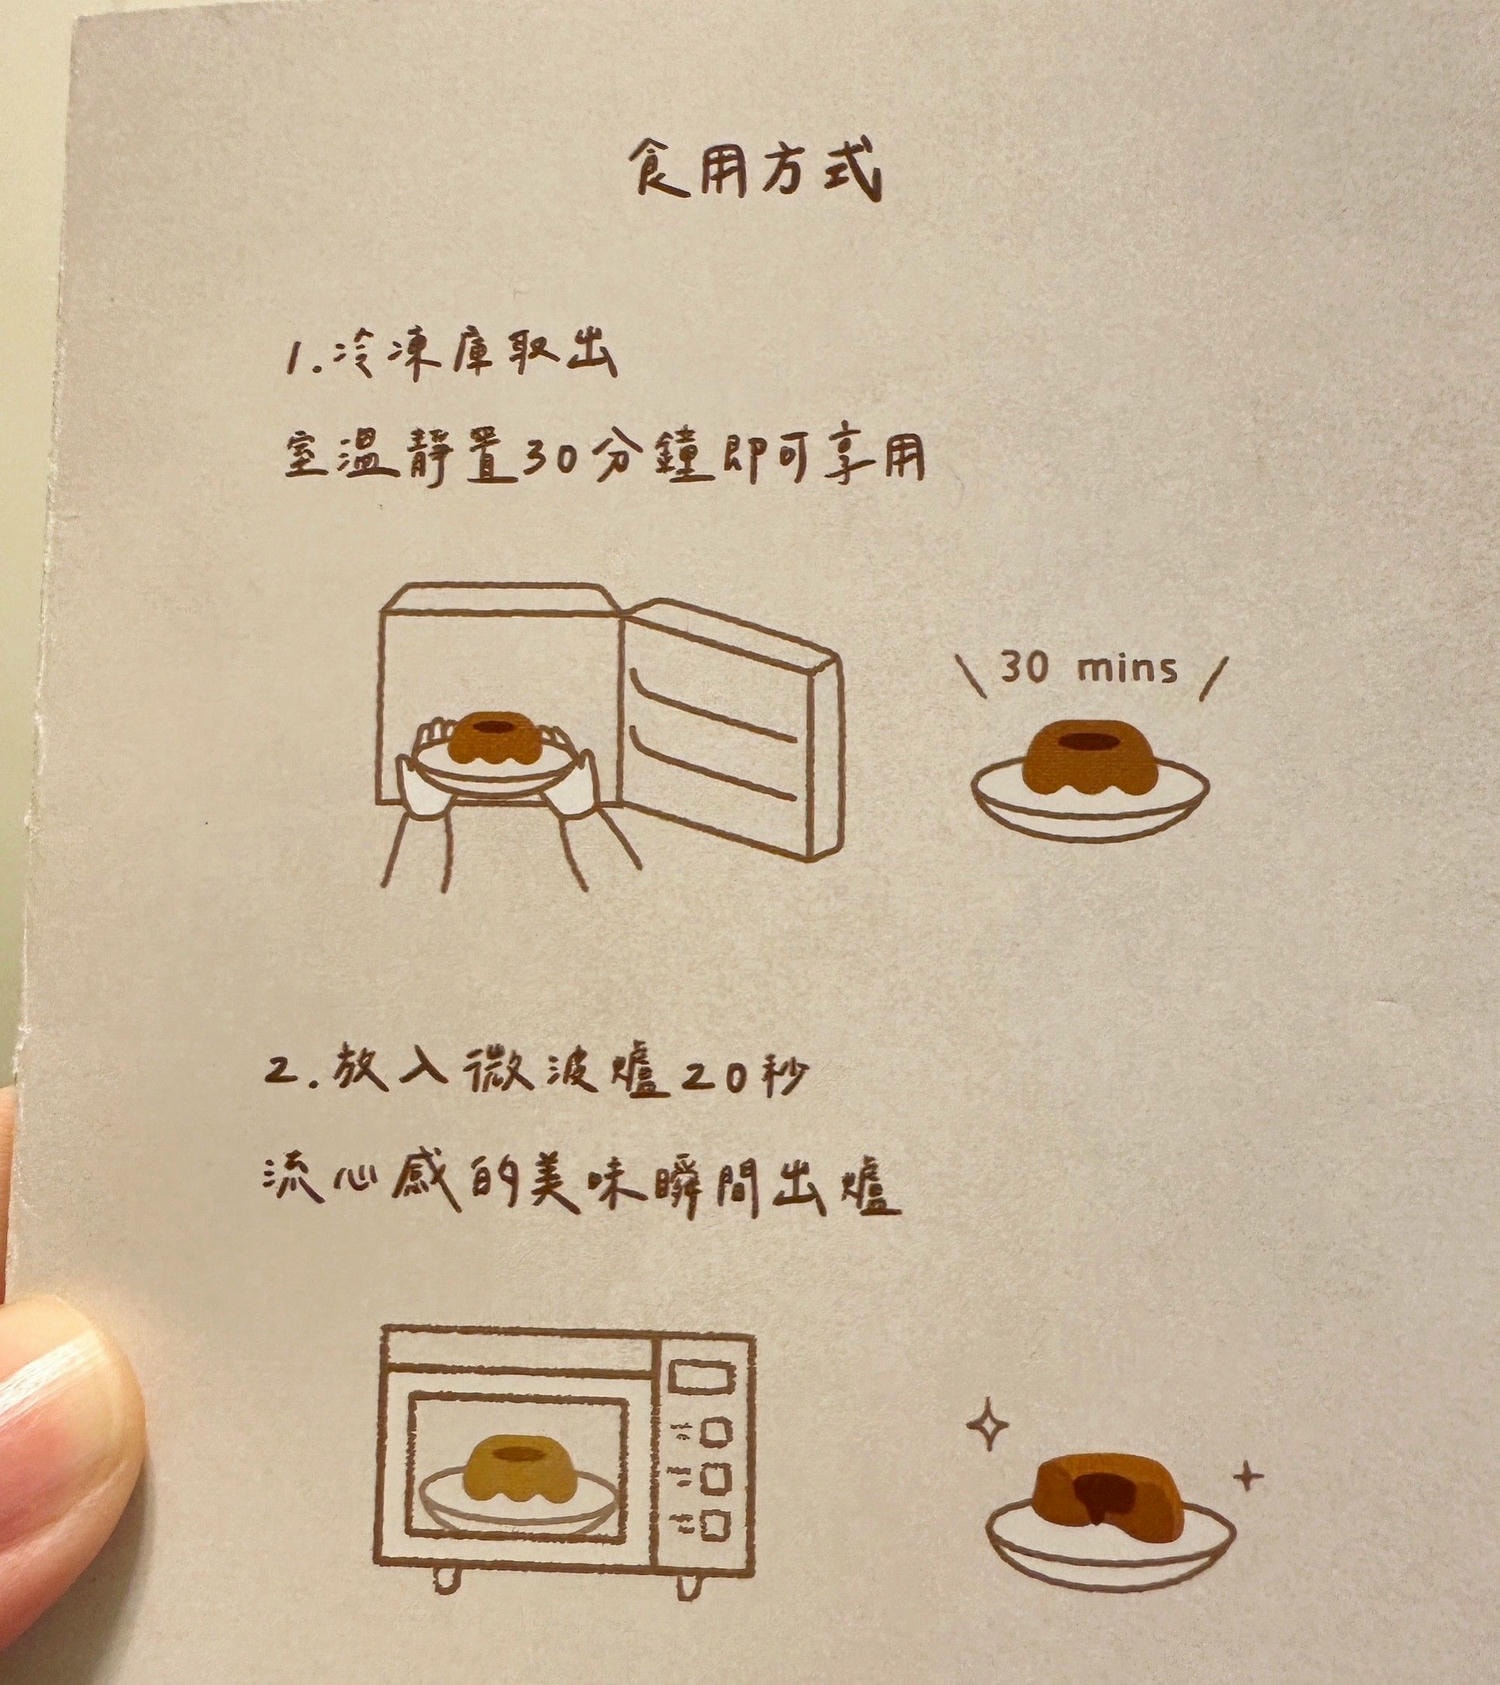 食用方式
1.冷凍庫取出
室溫靜置30分鐘即可享用
30 mins
2.放入微波爐20秒
流心感的美味瞬間出爐